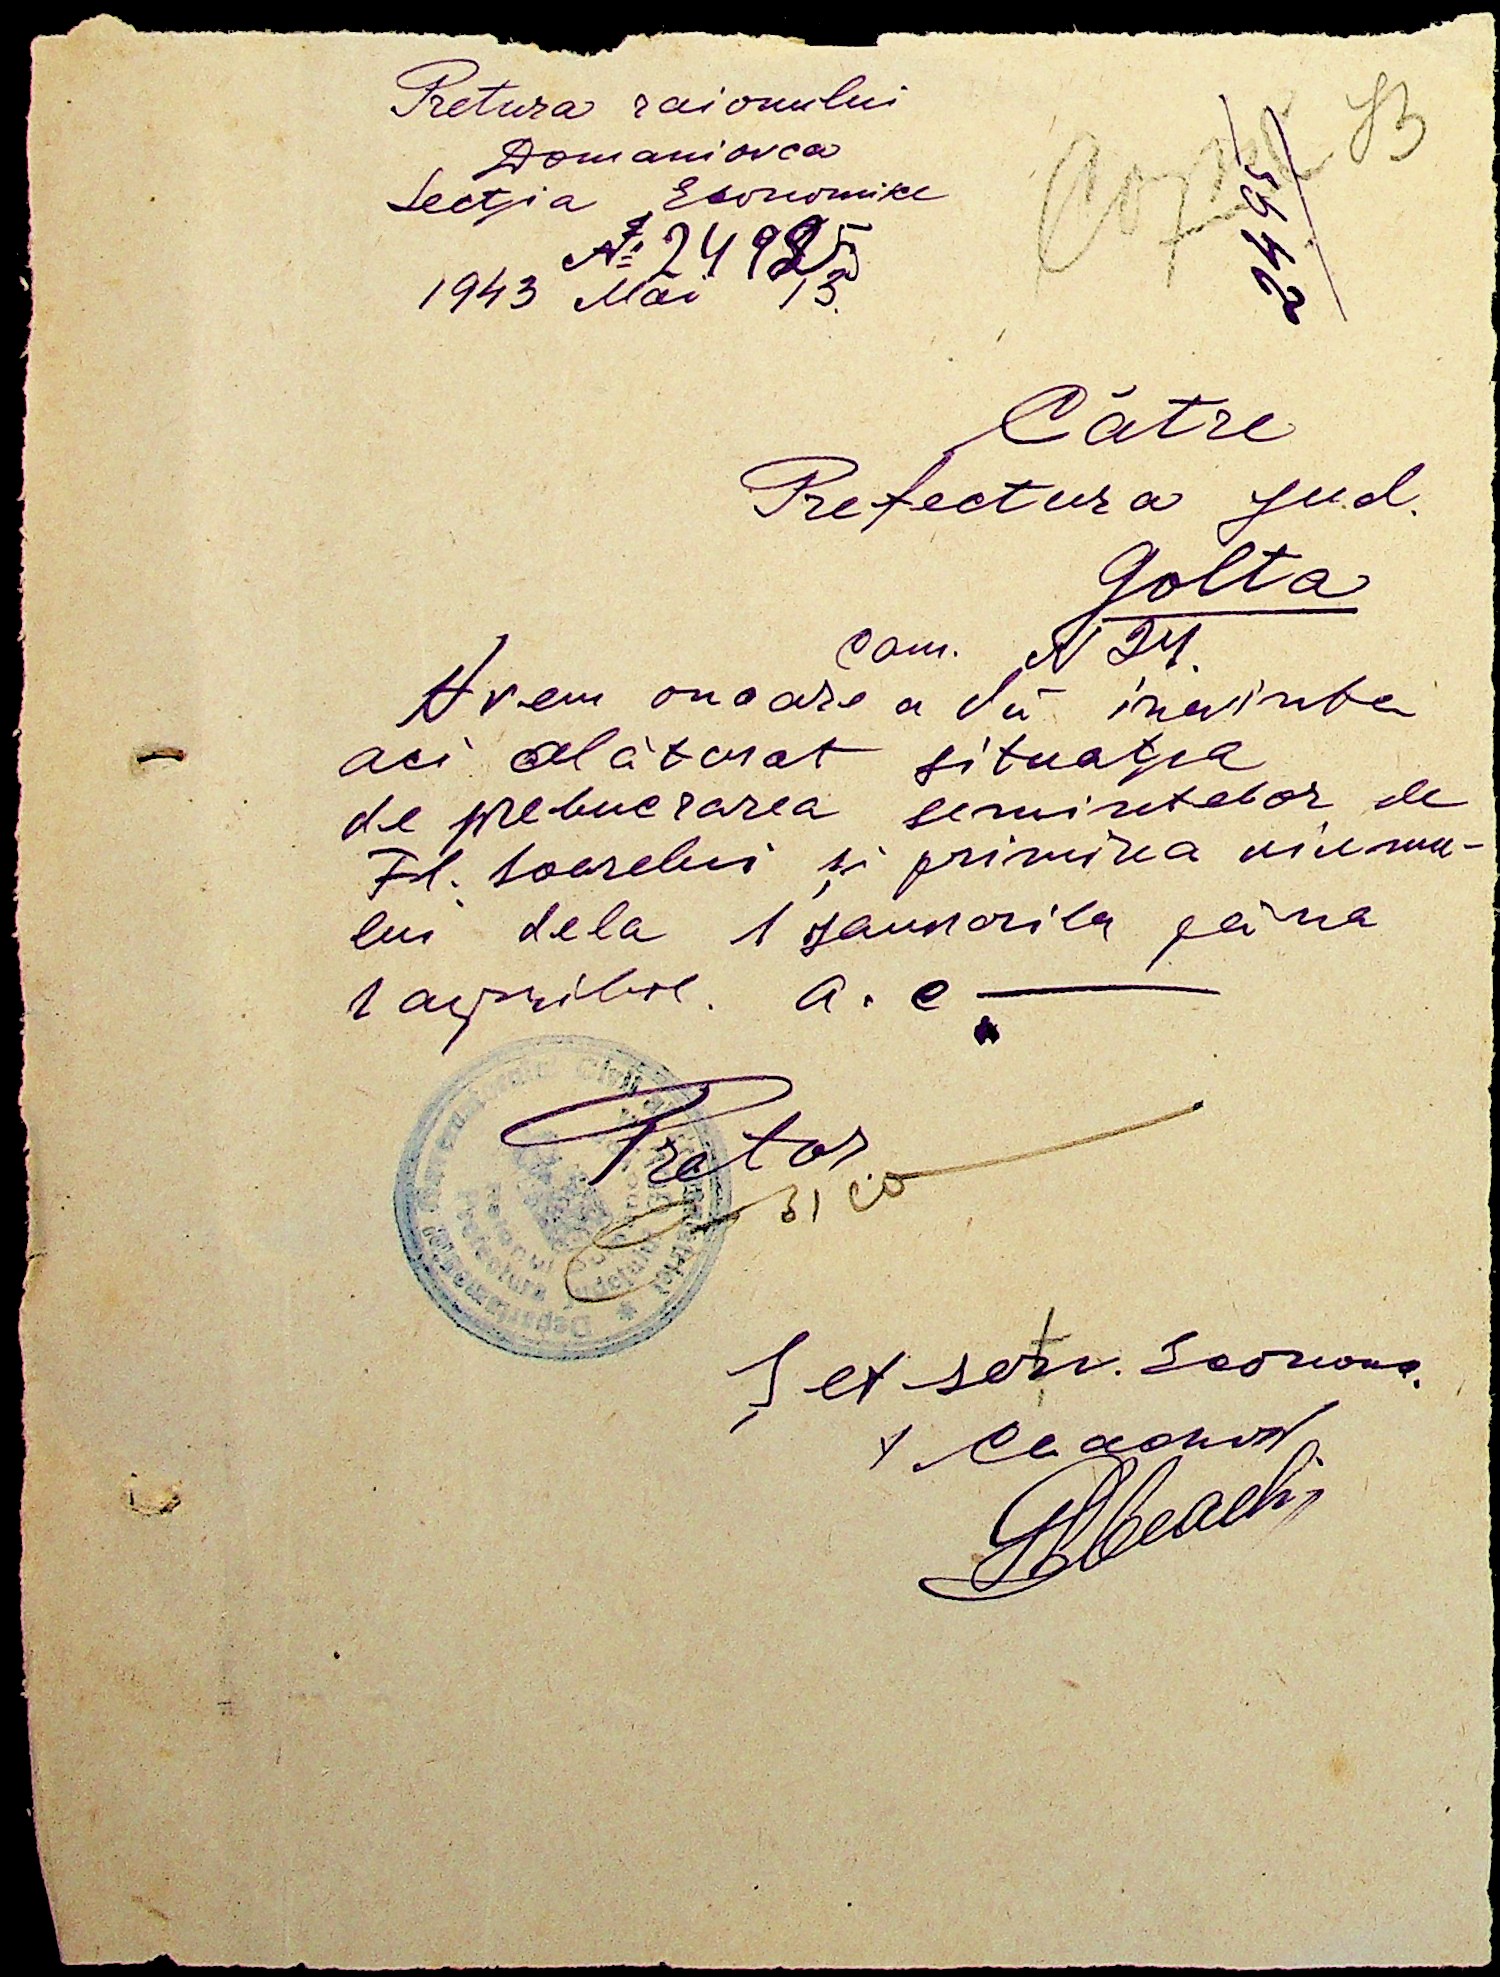 Pretura raionului
Domaniovca
Sectţia Economice
№ 24925
1943 Mai 13.
83
Către
Prefectura jud.
Golta
cam. N 24.
Avem onoare a Vă inainta
aci alăturat situaţia
de prebucrarea semintelor de
Fl. Soarelui şi primirea uiumu-
lui dela 1 Januarila păna
1 aprilie. a. c
Pretor
Şet serv. Econom.